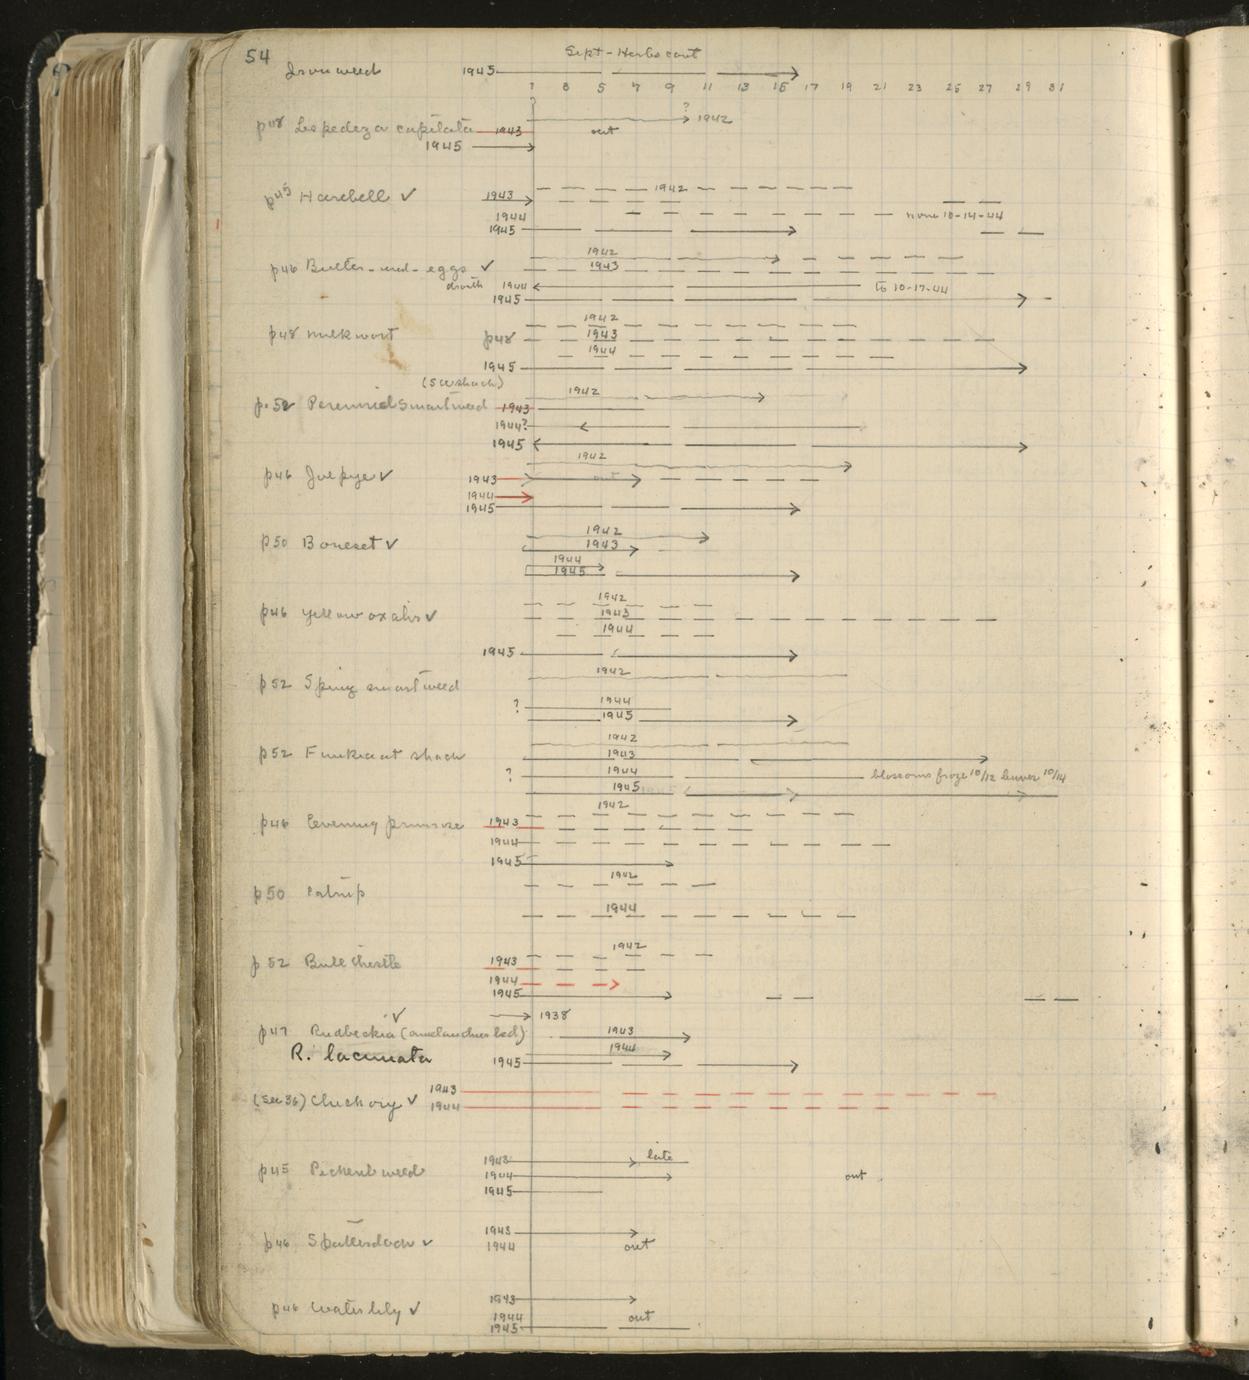 54
Sept - Herbs cont
Ironweed 1945
1 3 5 7 9 11 13 15 17 19 21 23 25 27 29 31
?
1942
p48 Lespedeza capitata 1943 out
1945
1942
p45 Harebell ✓ 1943
1944 none 10-14-44
1945
1942
p46 Butter-and-eggs ✓ 1943
drouth 1944 to 10-17-44
1945
1942
p48 milkwort p48 1943
1944
1945
(SW shack)
1942
p.52 Perennial Smartweed 1943
1944?
1945
1942
p46 Joe pye ✓ 1943 out
1944
1945
1942
p50 Boneset ✓ 1943
1944
1945
1942
p46 yellow oxalis ✓ 1943
1944
1945
1942
p52 Spiny smartweed
? 1944
1945
1942
p52 Funkia at shack 1943
? 1944 blossoms froze 10/12 leaves 10/14
1945
1942
p46 Evening primrose 1943
1944
1945
1942
p50 Catnip
1944
1942
p52 Bull thistle 1943
1944
1945
✓ 1938
p47 Rudbeckia (amelanchier bed) 1943
1944
R. laciniata 1945
1943
(Sec 36) Chickory ✓ 1944
1943 late
p45 Pickerel weed 1944 out
1945
1943
p46 Spatterdock ✓ 1944 out
1943
p46 Water lily ✓ 1944 out
1945